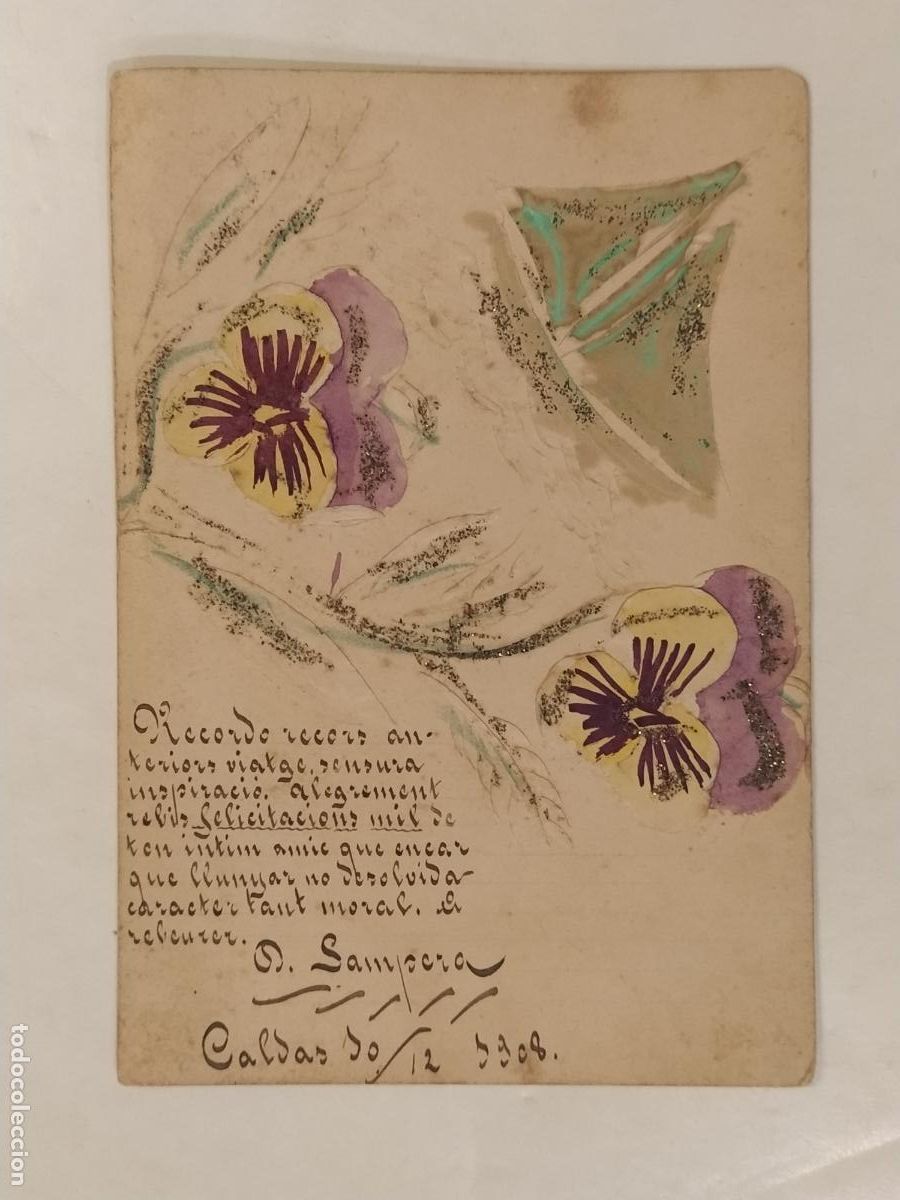 Recordo recors an-
teriors viatge, sensura
inspiració. Alegrement
rebis felicitacions mil de
ton intim amic que encar
que llunyar no desolvida
caracter tant moral. A
rebeurer.
D. Sampera
Caldas 30/12 1908.
todocoleccion